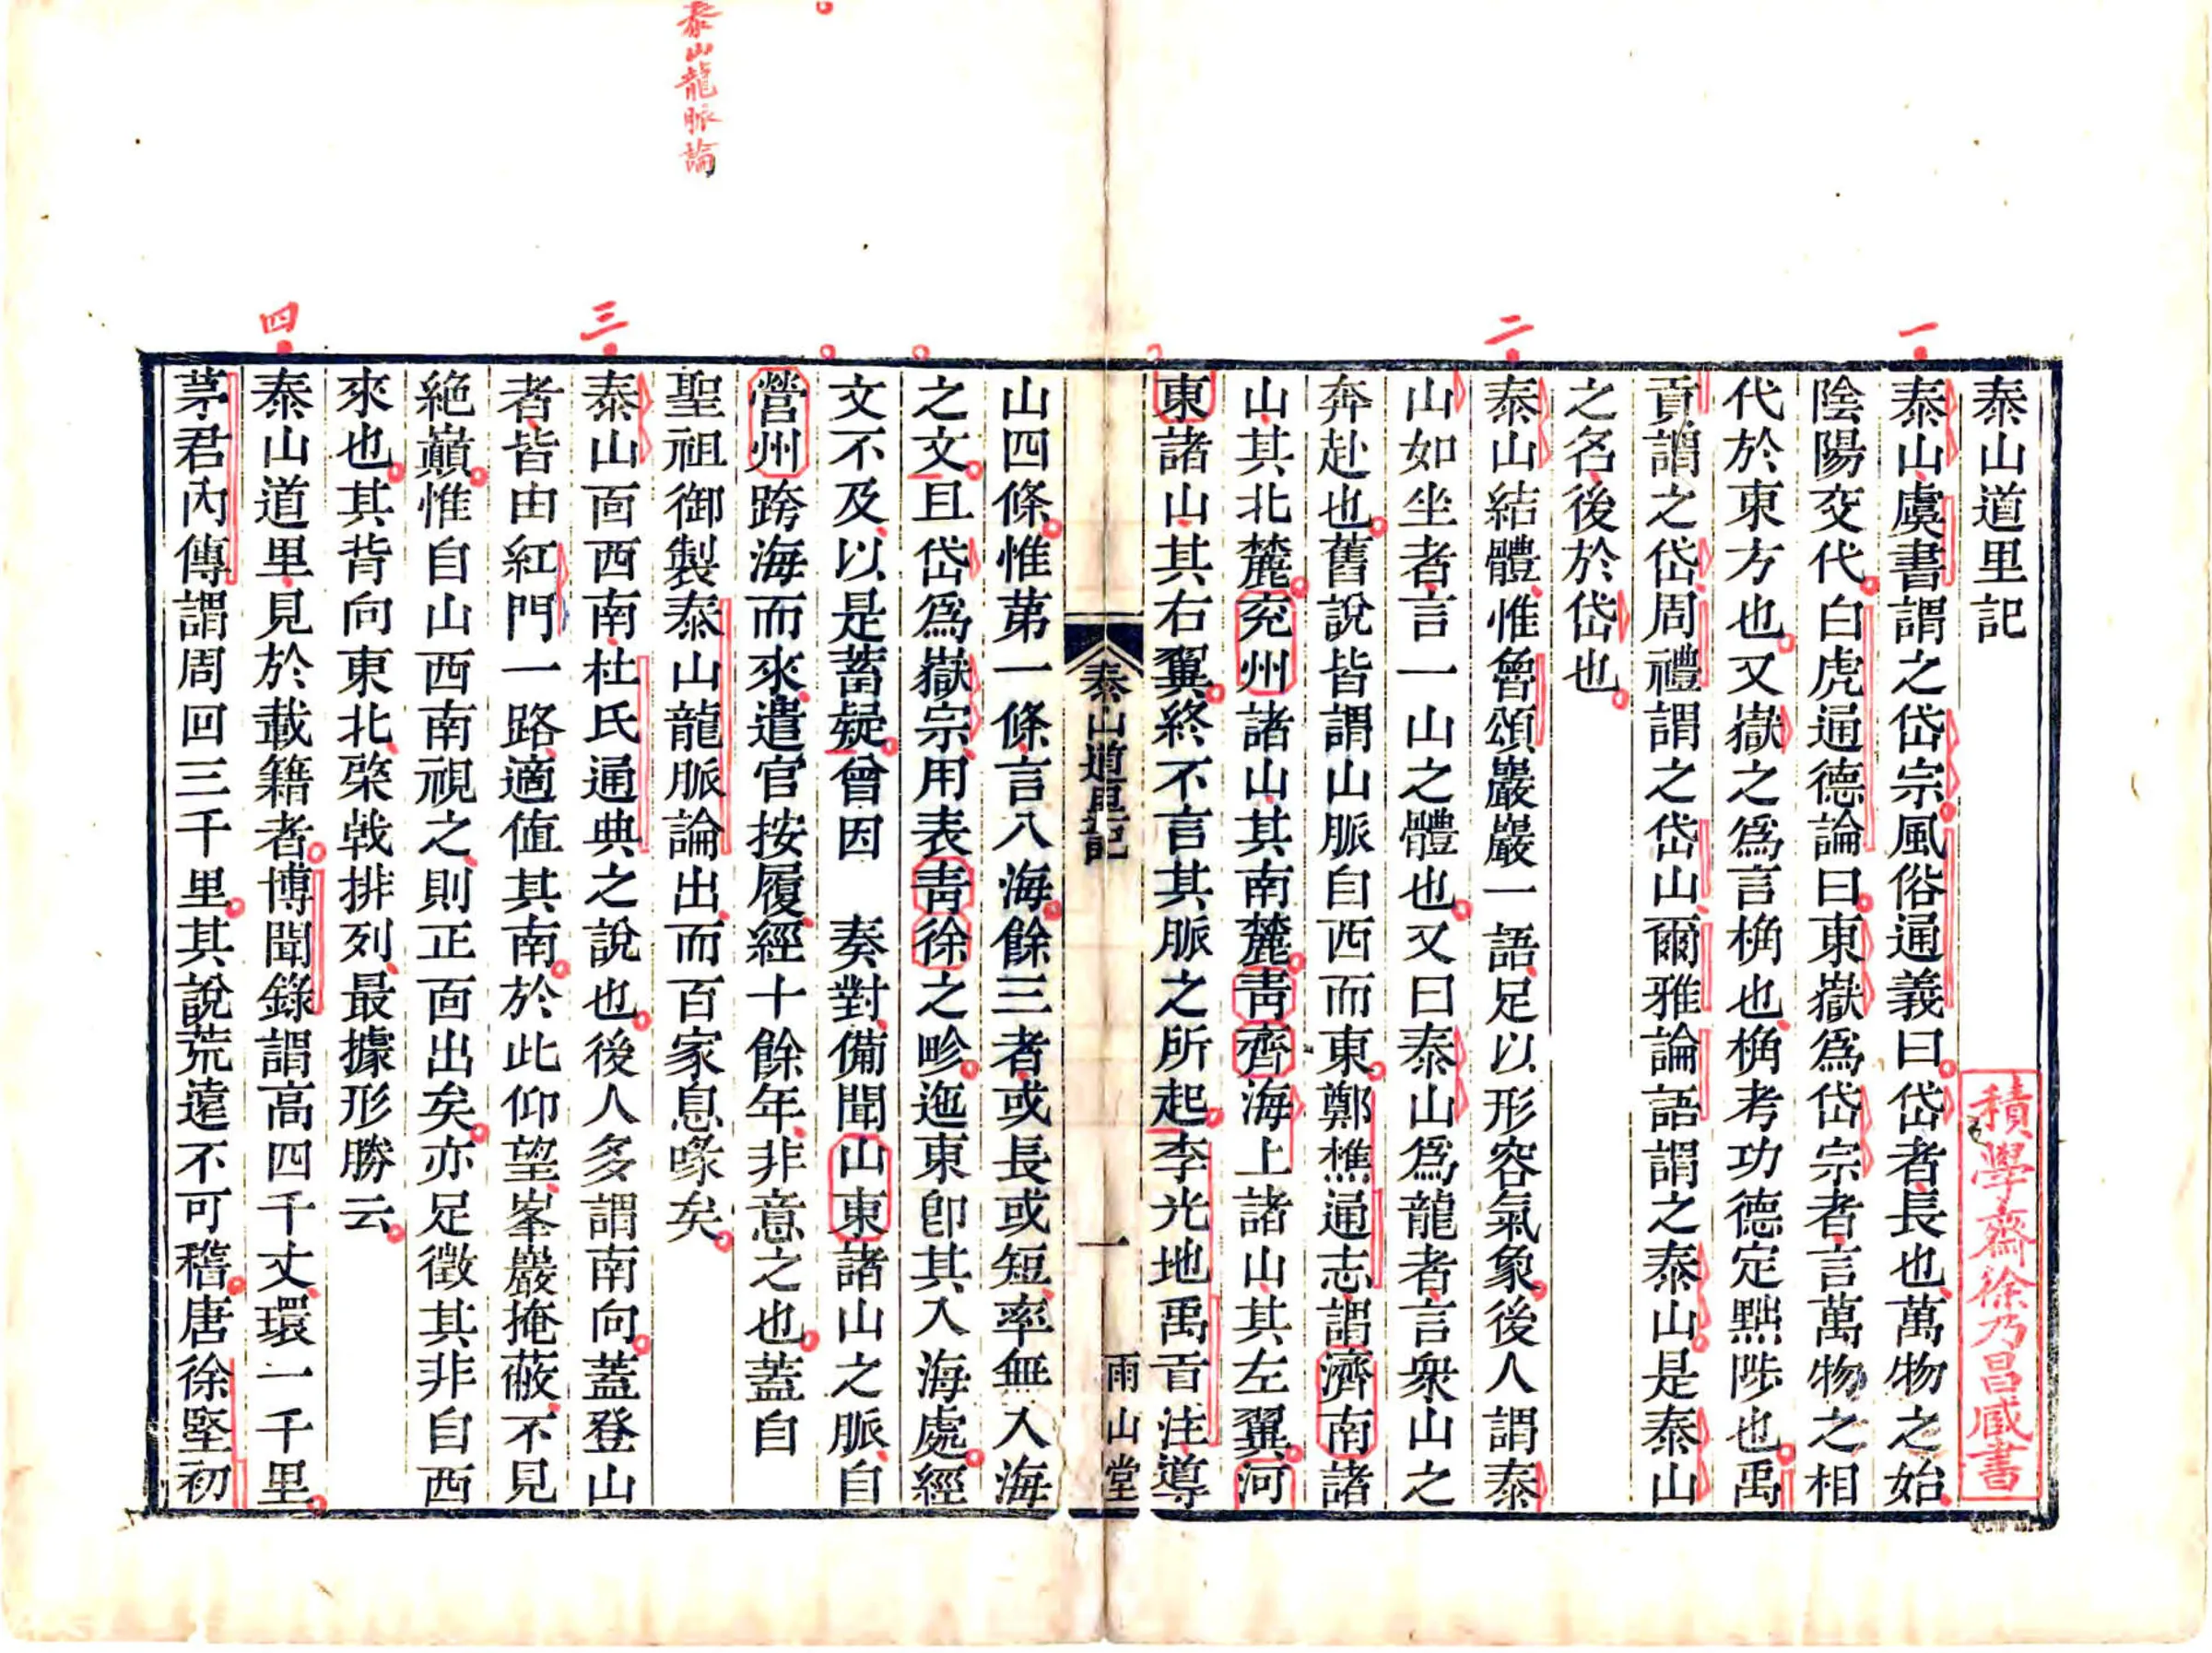 泰山道里記
積學齋徐乃昌臧書
一
泰山虞書謂之岱宗風俗通義曰岱者長也萬物之始
陰陽交代白虎通德論曰東嶽爲岱宗者言萬物之相
代於東方也又嶽之爲言桷也桷考功德定黜陟也禹
貢謂之岱周禮謂之岱山爾雅論語謂之泰山是泰山
之名後於岱也
二
泰山結體惟魯頌巖巖一語足以形容氣象後人謂泰
山如坐者言一山之體也又曰泰山爲龍者言衆山之
奔赴也舊說皆謂山脈自西而東鄭樵通志謂濟南諸
山其北麓兖州諸山其南麓靑齊海上諸山其左翼河
東諸山其右翼終不言其脈之所起李光地禹貢注導
泰山道里記
一
雨山堂
山四條惟苐一條言入海餘三者或長或短率無入海
之文且岱爲嶽宗用表靑徐之畛迤東卽其入海處經
文不及以是蓄疑曾因 奏對備聞山東諸山之脈自
營州跨海而來遣官按履經十餘年非意之也蓋自
泰山龍脈論
聖祖御製泰山龍脈論出而百家息喙矣
三
泰山面西南杜氏通典之說也後人多謂南向蓋登山
者皆由紅門一路適値其南於此仰望峯巖掩蔽不見
絶巔惟自山西南視之則正面出矣亦足徵其非自西
來也其背向東北棨戟排列最據形勝云
四
泰山道里見於載籍者博聞錄謂高四千丈環一千里
茅君內傳謂周回三千里其說荒遠不可稽唐徐堅初